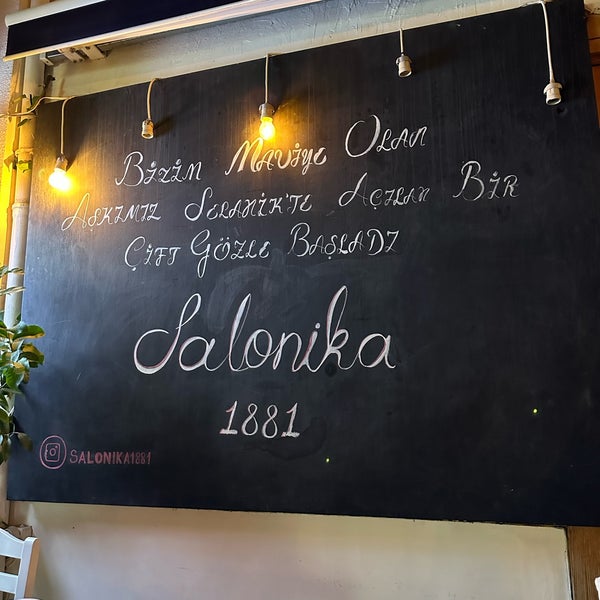 BİZİM MAVİYE OLAN
AŞKIMIZ SELANİK'TE AÇILAN BİR
ÇİFT GÖZLE BAŞLADI
Salonika
1881
SALONIKA1881